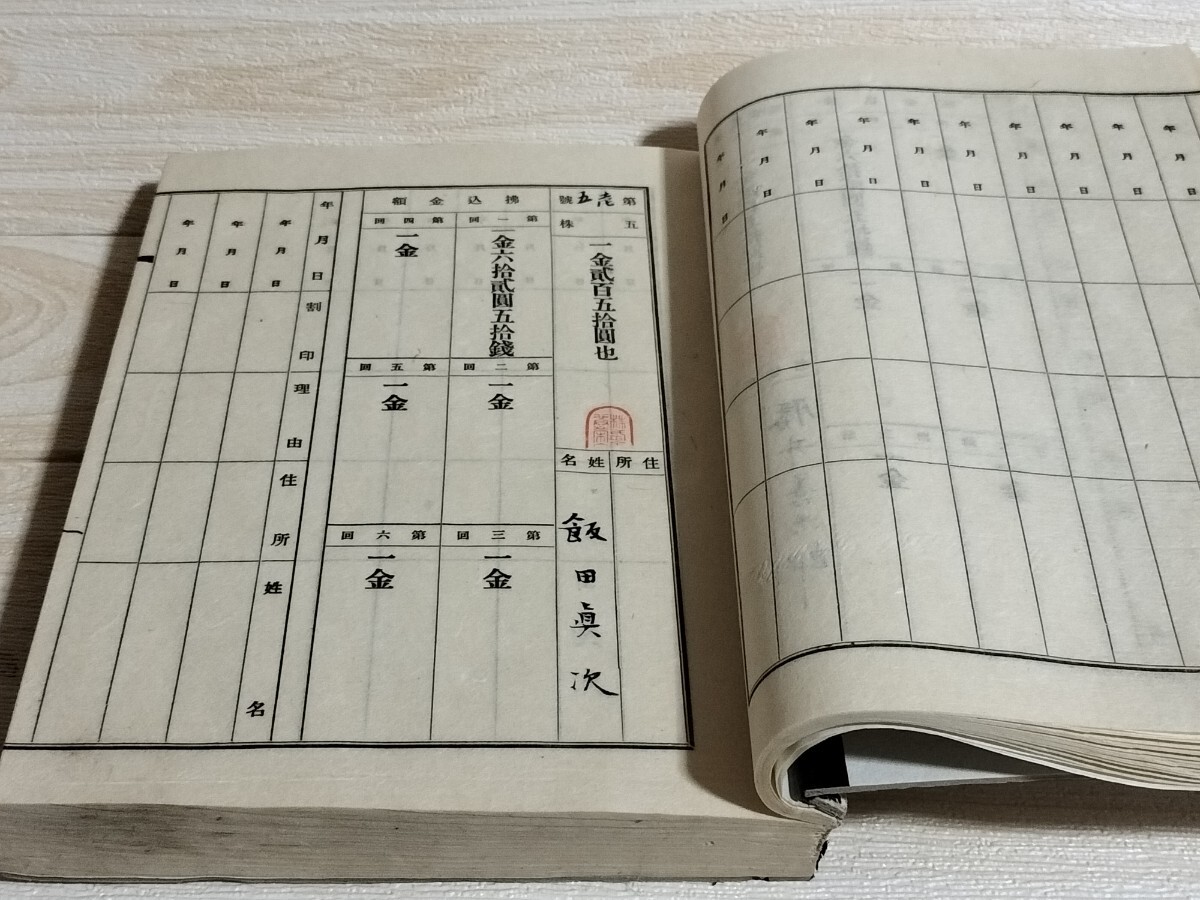 第壱五號
五株
一金貳百五拾圓也
住所姓名
飯田眞次
拂込金額
第一回
一金六拾貳圓五拾錢
第二回
一金
第三回
一金
第四回
一金
第五回
一金
第六回
一金
年月日
割印理由
住所姓名
年月日
年月日
年月日
年月日
年月日
年月日
年月日
年月日
年月日
年月日
年月日
年月日
年月日